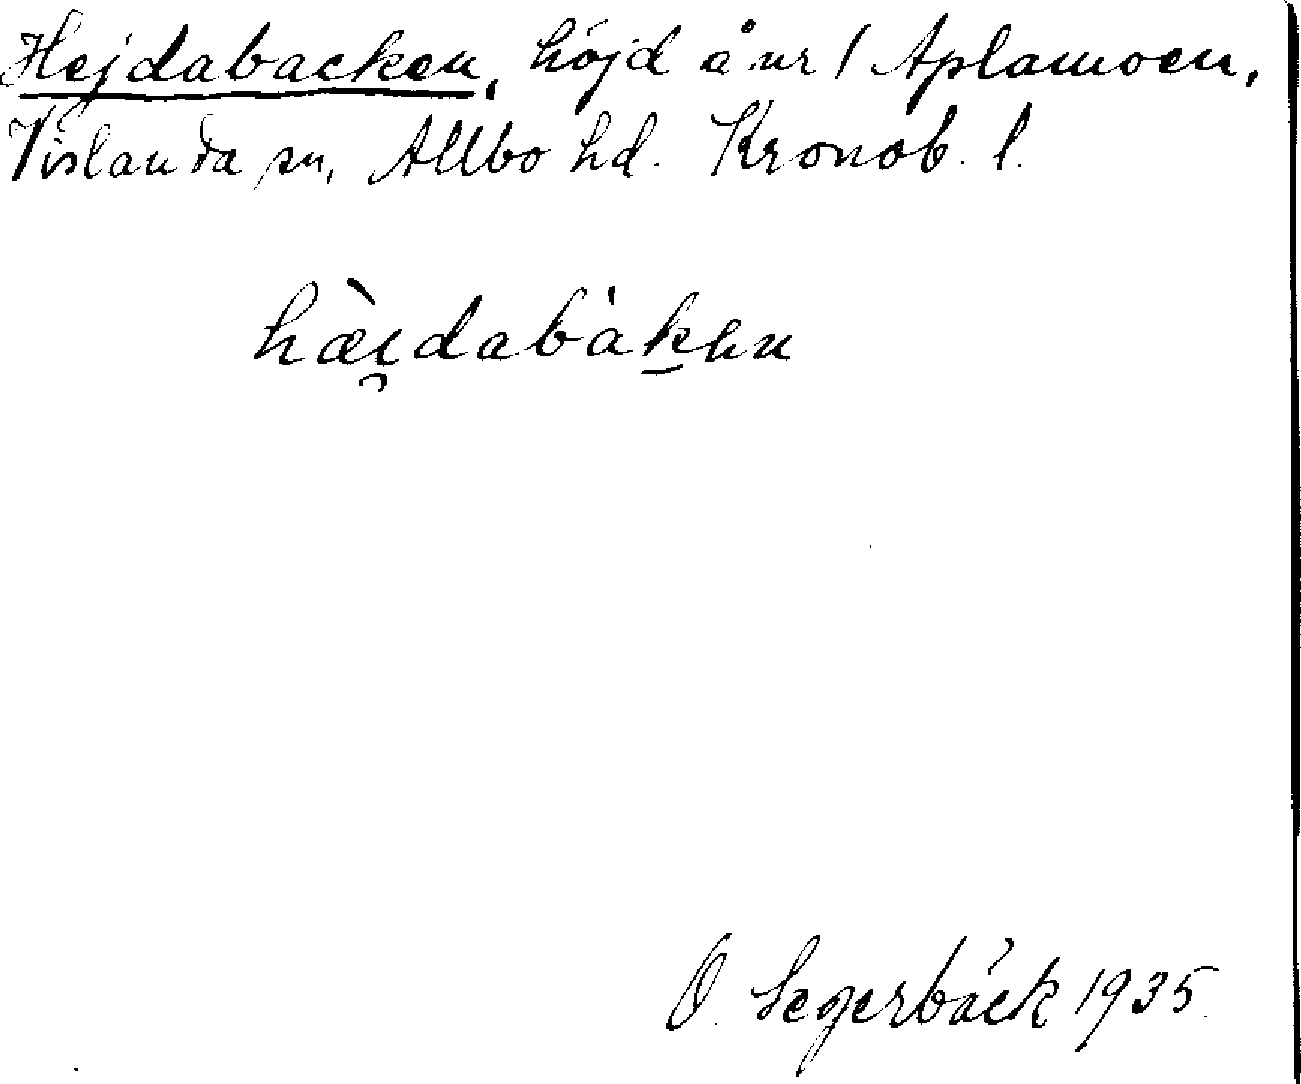 Hejdabacken, höjd å nr 1 Aplamoen,
Vislanda sn, Allbo hd. Kronob. l.
hæ̀i̯dabàk̠ən
O. Segerbäck 1935.